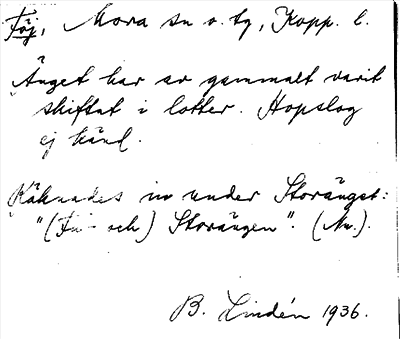 Föj, Mora sn o. tg, Kopp. l.
Änget har av gammalt varit
skiftat i lotter. Hopslog
ej känd.
Räknades in under Storänget:
"( - och) Storängen". (Nu.).
B. Lindén 1936.